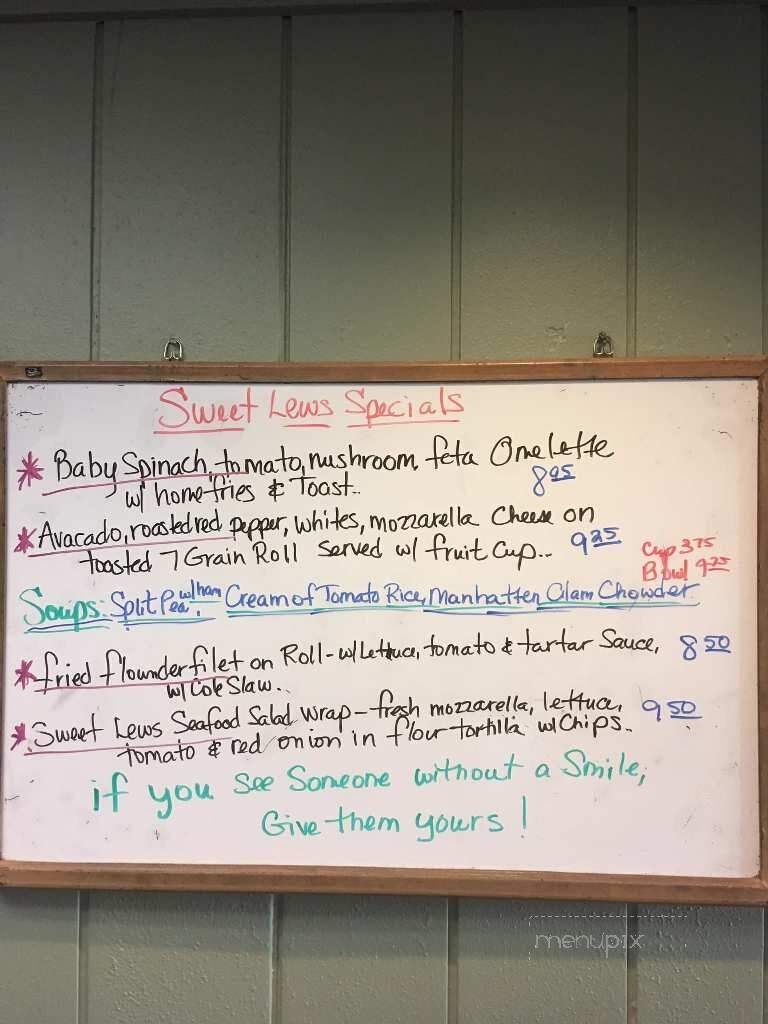 Sweet Lews Specials
* Baby Spinach, tomato, mushroom, feta Omelette
w/ homefries & Toast.. 8 95
* Avacado, roasted red pepper, whites, mozzarella Cheese on
toasted 7 Grain Roll served w/ fruit Cup... 9 25
Cup 3 75
Bowl 4 25
Soups: Split Pea w/ham, Cream of Tomato Rice, Manhatten Clam Chowder
* fried flounder filet on Roll - w/ Lettuce, tomato & tartar Sauce, 8 50
w/ Cole Slaw..
* Sweet Lews Seafood Salad Wrap - fresh mozzarella, lettuce, 9 50
tomato & red onion in flour tortilla w/ Chips.
if you see Someone without a Smile,
Give them yours!
menupix